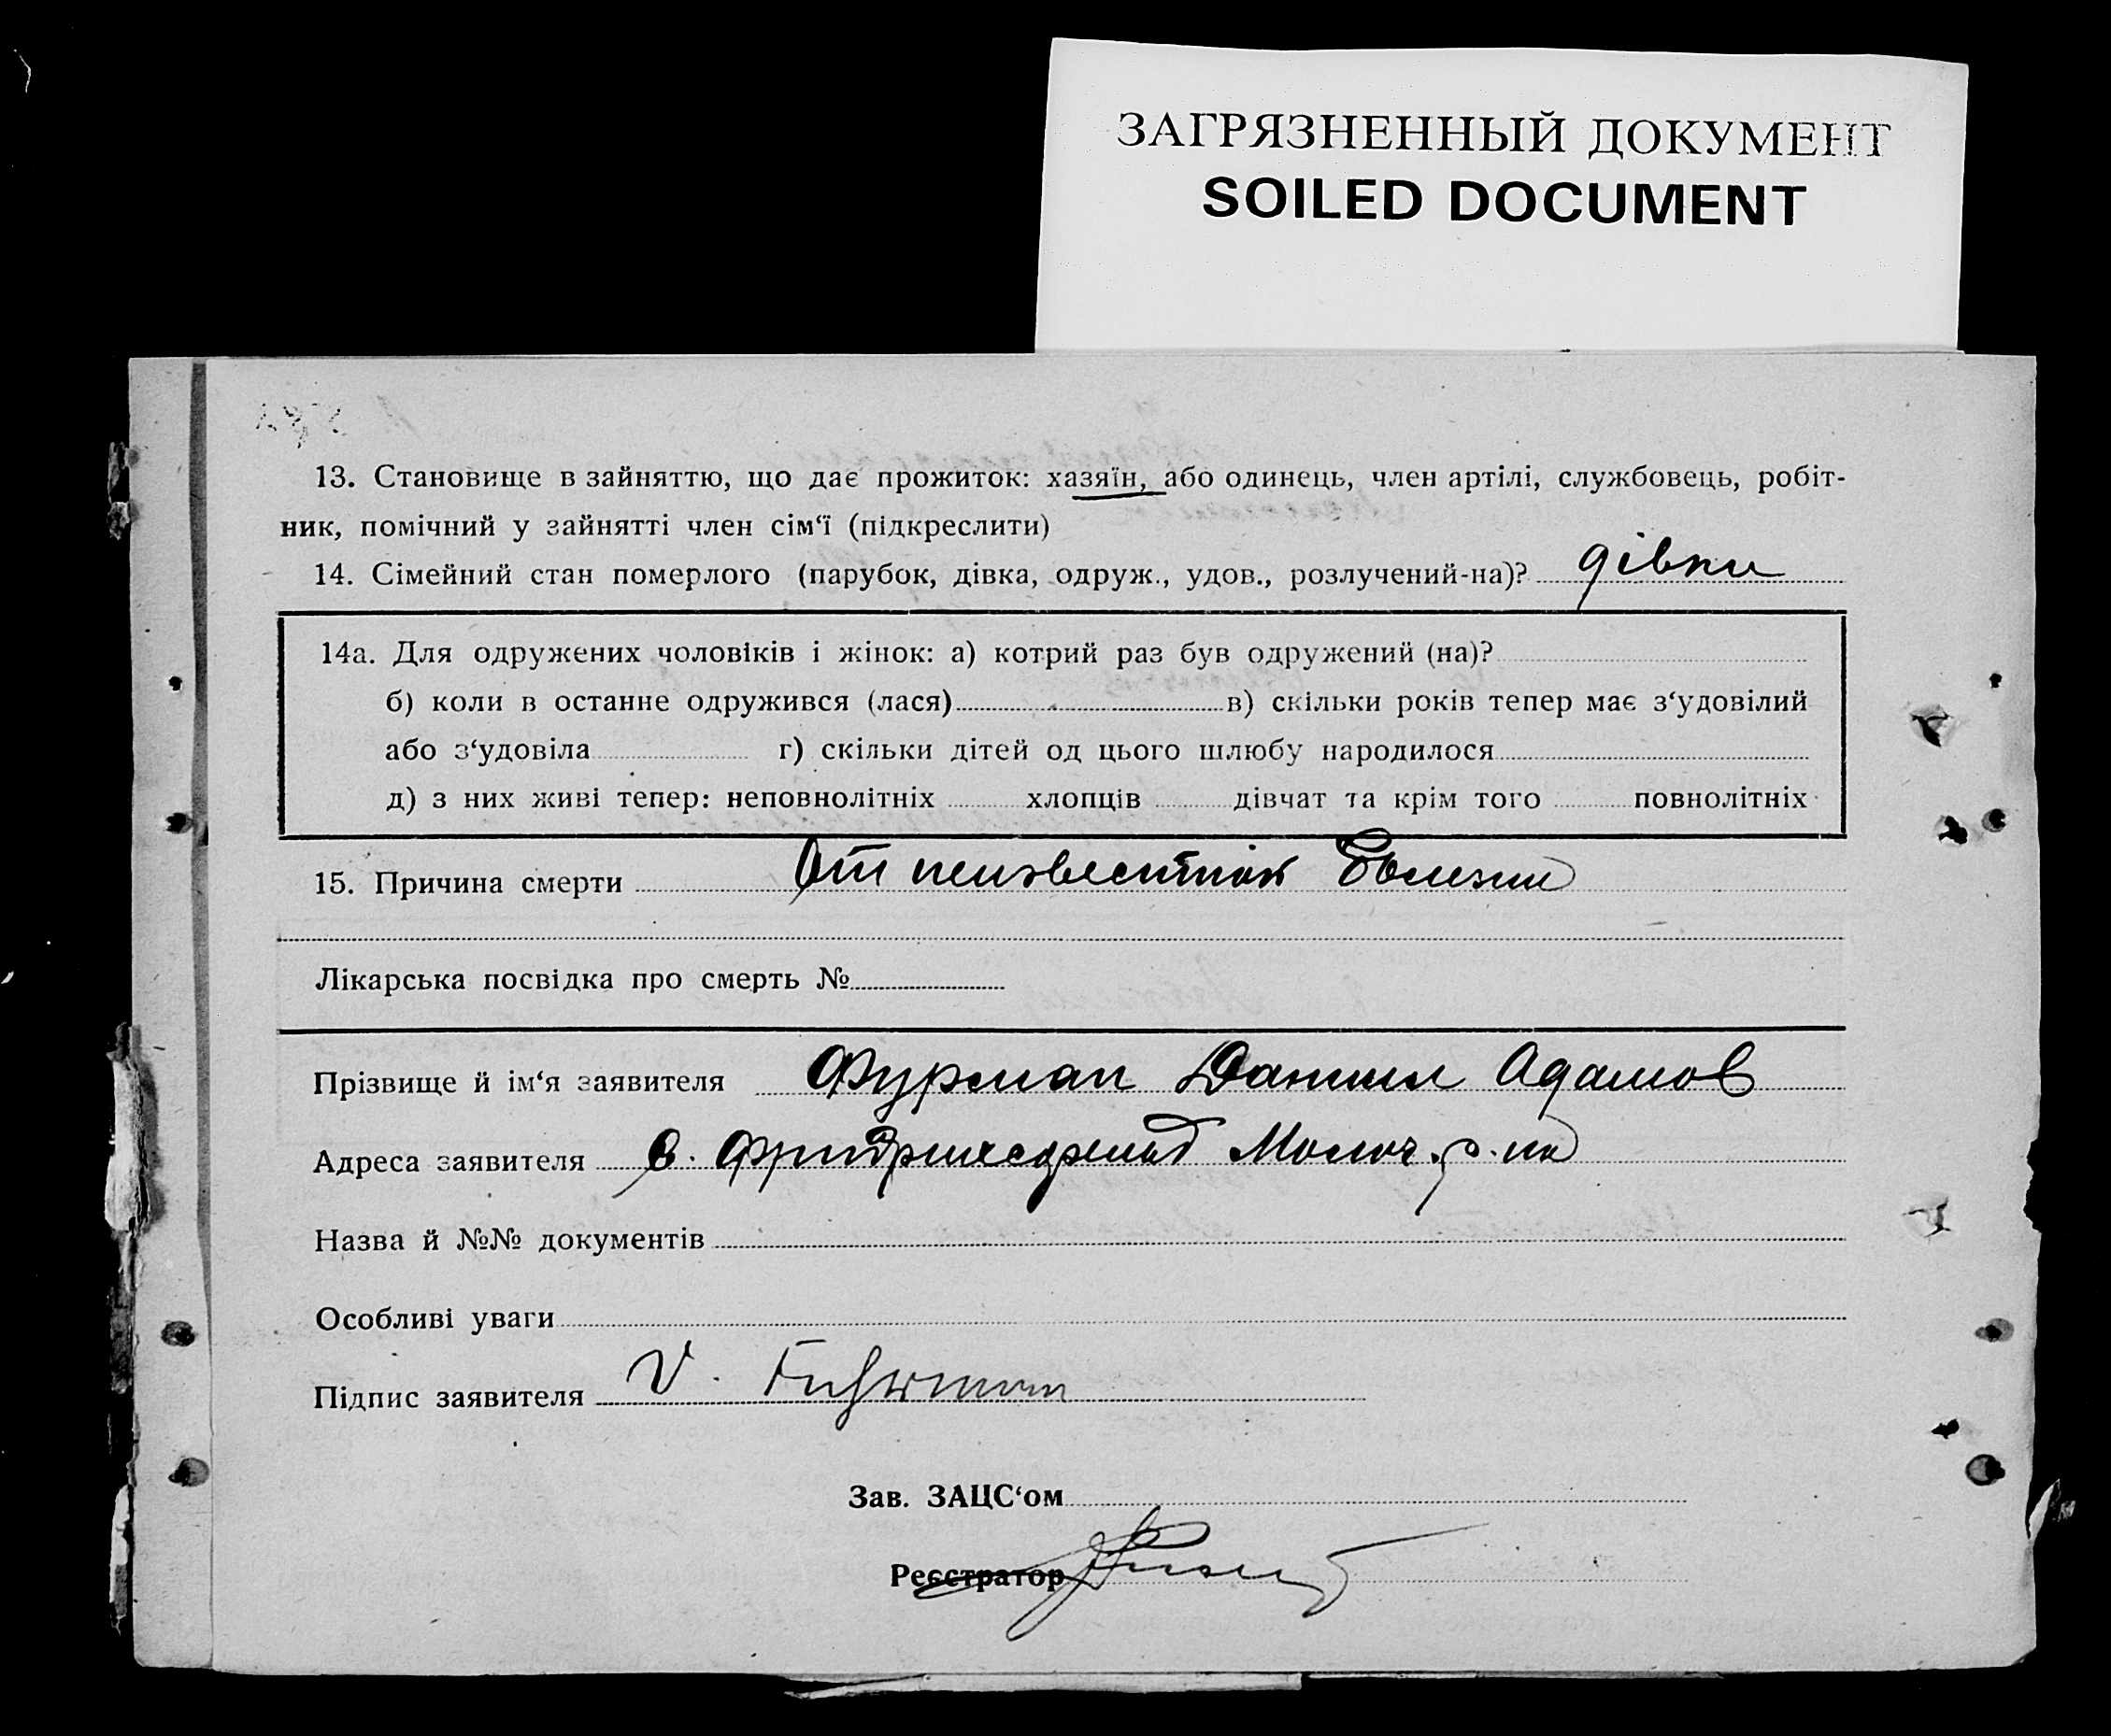 ЗАГРЯЗНЕННЫЙ ДОКУМЕНТ
SOILED DOCUMENT
13. Становище в зайняттю, що дає прожиток: хазяїн, або одинець, член артілі, службовець, робіт-
ник, помічний у зайнятті член сім‘ї (підкреслити)
14. Сімейний стан померлого (парубок, дівка, одруж., удов., розлучений-на)? дівки
14а. Для одружених чоловіків і жінок: а) котрий раз був одружений (на)?
б) коли в останне одружився (лася) в) скільки років тепер має з‘удовілий
або з‘удовіла г) скільки дітей од цього шлюбу народилося
д) з них живі тепер: неповнолітніх хлопців дівчат та крім того повнолітніх
15. Причина смерти От неизвестной болезни
Лікарська посвідка про смерть №
Прізвище й ім‘я заявителя Фурман Даниил Адамов
Адреса заявителя с. Фридрихсфельд Молоч. р-на
Назва й №№ документів
Особливі уваги
Підпис заявителя Fuhrmann
Зав. ЗАЦС‘ом
Реєстратор